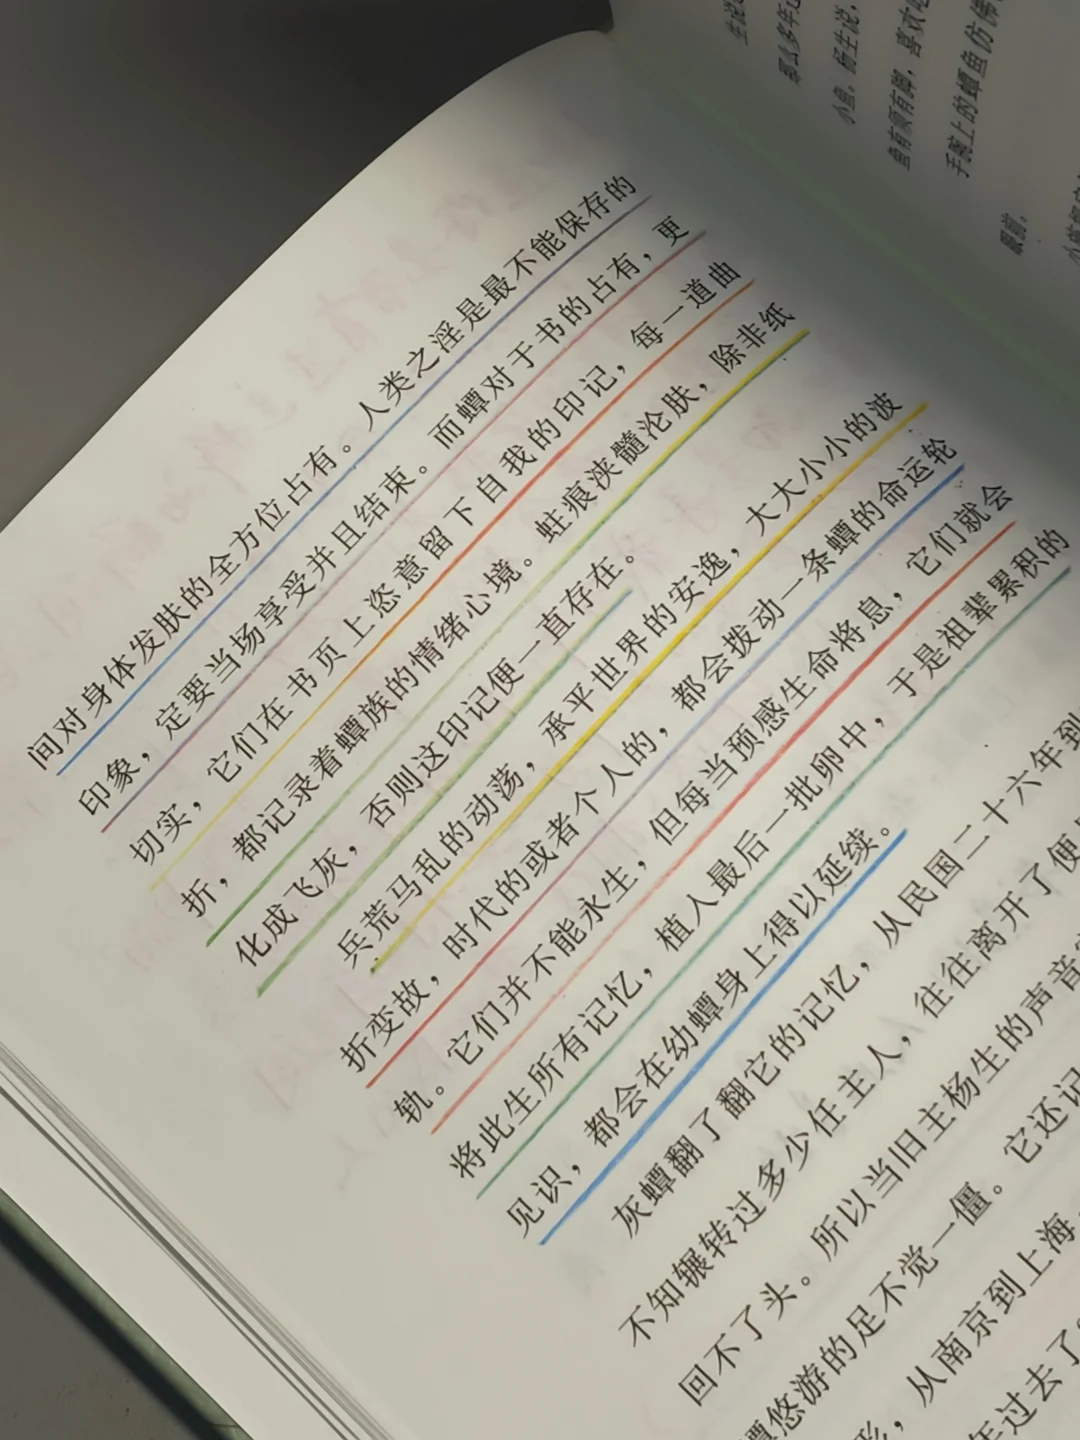 间对身体发肤的全方位占有。人类之淫是最不能保存的
印象，定要当场享受并且结束。而蟫对于书的占有，更
切实，它们在书页上恣意留下自我的印记，每一道曲
折，都记录着蟫族的情绪心境。蛀痕浃髓沦肤，除非纸
化成飞灰，否则这印记便一直存在。
兵荒马乱的动荡，承平世界的安逸，大大小小的波
折变故，时代的或者个人的，都会拨动一条蟫的命运轮
轨。它们并不能永生，但每当预感生命将息，它们就会
将此生所有记忆，植入最后一批卵中，于是祖辈累积的
见识，都会在幼蟫身上得以延续。
灰蟫翻了翻它的记忆，从民国二十六年到
不知辗转过多少任主人，往往离开了便
回不了头。所以当旧主杨生的声音
蟫悠游的足不觉一僵。它还记
形，从南京到上海
年过去了
生说
那么多年
小鱼。杨生说，
鱼有须有脚，喜欢
手腕上的蟫鱼仿佛
眼前。